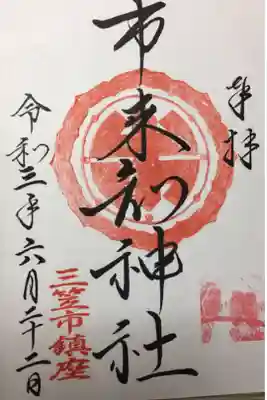 奉拝
市来知神社
三笠市鎮座
令和三年六月二十二日